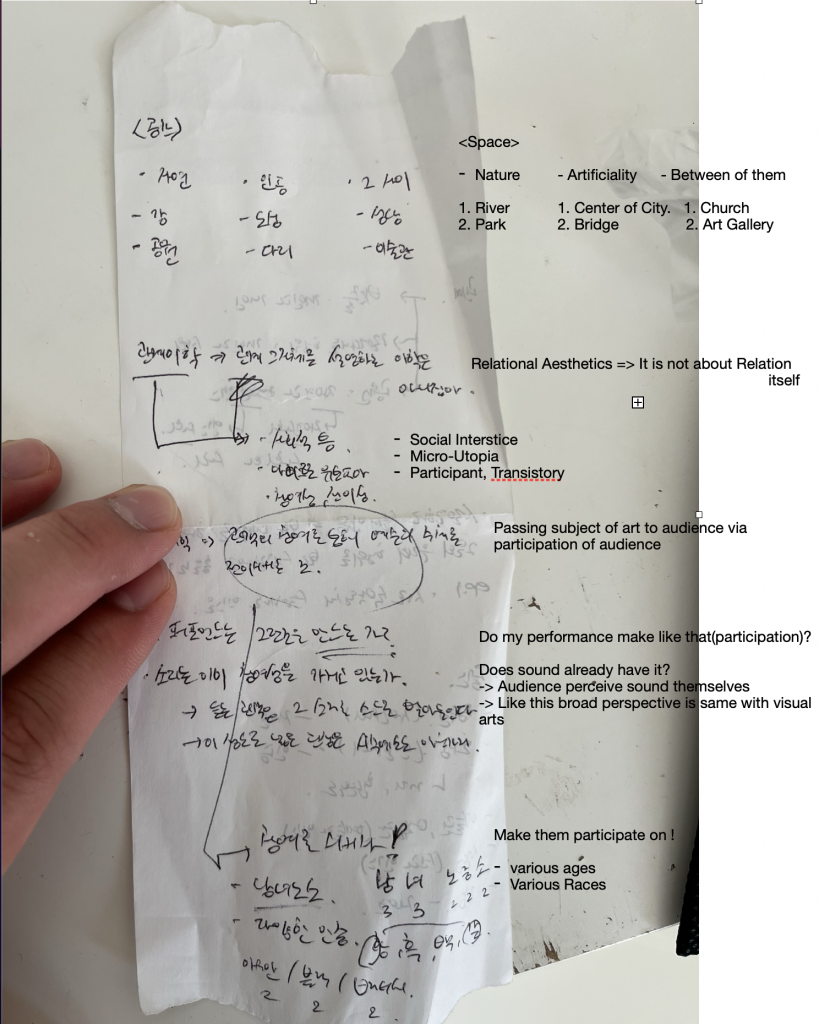 <공간>
<Space>
· 자연 · 인공 · 그 사이
- Nature - Artificiality - Between of them
- 강 - 도심 - 성당
1. River 1. Center of City. 1. Church
2. Park 2. Bridge 2. Art Gallery
- 공원 - 다리 - 미술관
관계미학 => 관계 그 자체를 설명하는 미학은
아니지만.
Relational Aesthetics => It is not about Relation
itself
· 사회적 틈.
· 마이크로 유토피아
· 참여성,
- Social Interstice
- Micro-Utopia
- Participant, Transistory
=> 관객의 참여를 통해 예술의 주체를
Passing subject of art to audience via
participation of audience
퍼포먼스는 그러함을 만드는가?
Do my performance make like that(participation)?
· 소리는 이미 참여성을 가지고 있는가.
Does sound already have it?
-> Audience perceive sound themselves
-> Like this broad perspective is same with visual
arts
→ 듣는 관객은 그 소리를 스스로
→ 이 정도로 넓은 관점은
참여를 시키자!
Make them participate on !
- 남녀노소. 남 녀 노 중 소
3 3 2 2 2
- various ages
- Various Races
- 다양한 인종. (황, 흑, 백,
2 2 2